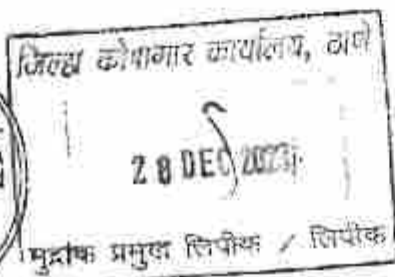 जिल्हा कोषागार कार्यालय, ठाणे
28 DEC 2023
मुद्रांक प्रमुख लिपीक / लिपीक